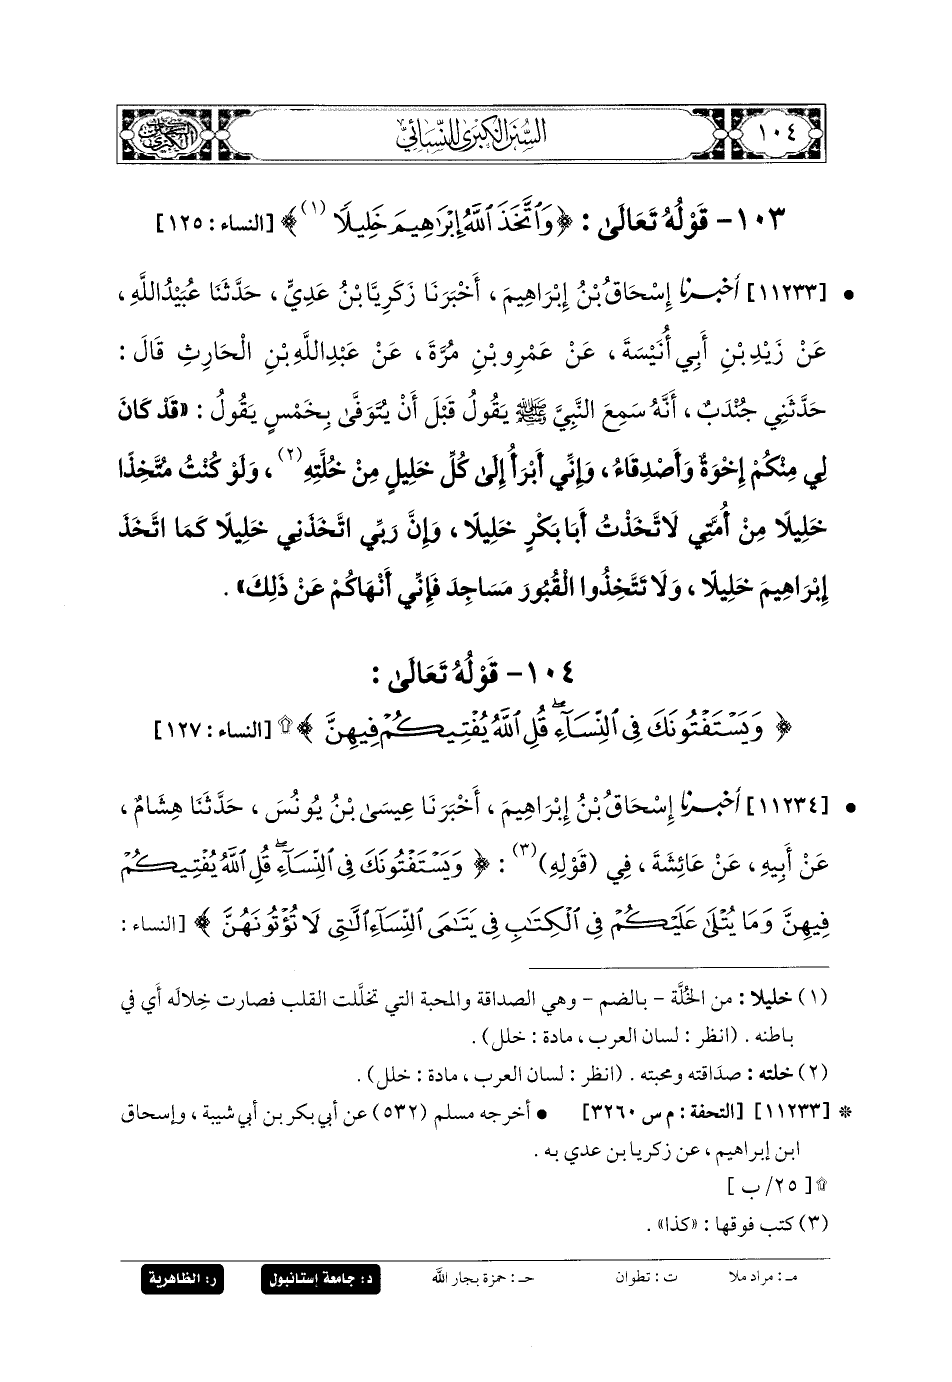 ١٠٤
السنن الكبرى للنسائي
١٠٣- قَوْلُهُ تَعَالَى : ﴿وَٱتَّخَذَ ٱللَّهُ إِبْرَٰهِيمَ خَلِيلًا (١)﴾ [النساء : ١٢٥]
• [١١٢٣٣] أخبرنا إِسْحَاقُ بْنُ إِبْرَاهِيمَ ، أَخْبَرَنَا زَكَرِيَّا بْنُ عَدِيٍّ ، حَدَّثَنَا عُبَيْدُاللَّهِ ،
عَنْ زَيْدِ بْنِ أَبِي أُنَيْسَةَ ، عَنْ عَمْرِو بْنِ مُرَّةَ ، عَنْ عَبْدِاللَّهِ بْنِ الْحَارِثِ قَالَ :
حَدَّثَنِي جُنْدَبٌ ، أَنَّهُ سَمِعَ النَّبِيَّ ﷺ يَقُولُ قَبْلَ أَنْ يُتَوَفَّى بِخَمْسٍ يَقُولُ : «قَدْ كَانَ
لِي مِنْكُمْ إِخْوَةٌ وَأَصْدِقَاءُ ، وَإِنِّي أَبْرَأُ إِلَى كُلِّ خَلِيلٍ مِنْ خُلَّتِهِ (٢) ، وَلَوْ كُنْتُ مُتَّخِذًا
خَلِيلًا مِنْ أُمَّتِي لَاتَّخَذْتُ أَبَا بَكْرٍ خَلِيلًا ، وَإِنَّ رَبِّي اتَّخَذَنِي خَلِيلًا كَمَا اتَّخَذَ
إِبْرَاهِيمَ خَلِيلًا ، وَلَا تَتَّخِذُوا الْقُبُورَ مَسَاجِدَ فَإِنِّي أَنْهَاكُمْ عَنْ ذَلِكَ» .
١٠٤- قَوْلُهُ تَعَالَى :
﴿ وَيَسْتَفْتُونَكَ فِى ٱلنِّسَآءِ ۖ قُلِ ٱللَّهُ يُفْتِيكُمْ فِيهِنَّ ﴾ ۩ [النساء : ١٢٧]
• [١١٢٣٤] أخبرنا إِسْحَاقُ بْنُ إِبْرَاهِيمَ ، أَخْبَرَنَا عِيسَى بْنُ يُونُسَ ، حَدَّثَنَا هِشَامٌ ،
عَنْ أَبِيهِ ، عَنْ عَائِشَةَ ، فِي (قَوْلِهِ) (٣) : ﴿ وَيَسْتَفْتُونَكَ فِى ٱلنِّسَآءِ ۖ قُلِ ٱللَّهُ يُفْتِيكُمْ
فِيهِنَّ وَمَا يُتْلَىٰ عَلَيْكُمْ فِى ٱلْكِتَٰبِ فِى يَتَٰمَى ٱلنِّسَآءِ ٱلَّٰتِى لَا تُؤْتُونَهُنَّ ﴾ [النساء :
(١) خليلا : من الخُلَّة - بالضم - وهي الصداقة والمحبة التي تخلَّلت القلب فصارت خِلالَه أي في
باطنه . (انظر : لسان العرب ، مادة : خلل) .
(٢) خلته : صدَاقته ومحبته . (انظر : لسان العرب ، مادة : خلل) .
* [١١٢٣٣] [التحفة : م س ٣٢٦٠] • أخرجه مسلم (٥٣٢) عن أبي بكر بن أبي شيبة ، وإسحاق
ابن إبراهيم ، عن زكريا بن عدي به .
۩ [ ٢٥/ ب ]
(٣) كتب فوقها : «كذا» .
مـ : مراد ملا ت : تطوان حـ : حمزة بجار الله د : جامعة إستانبول ر : الظاهرية